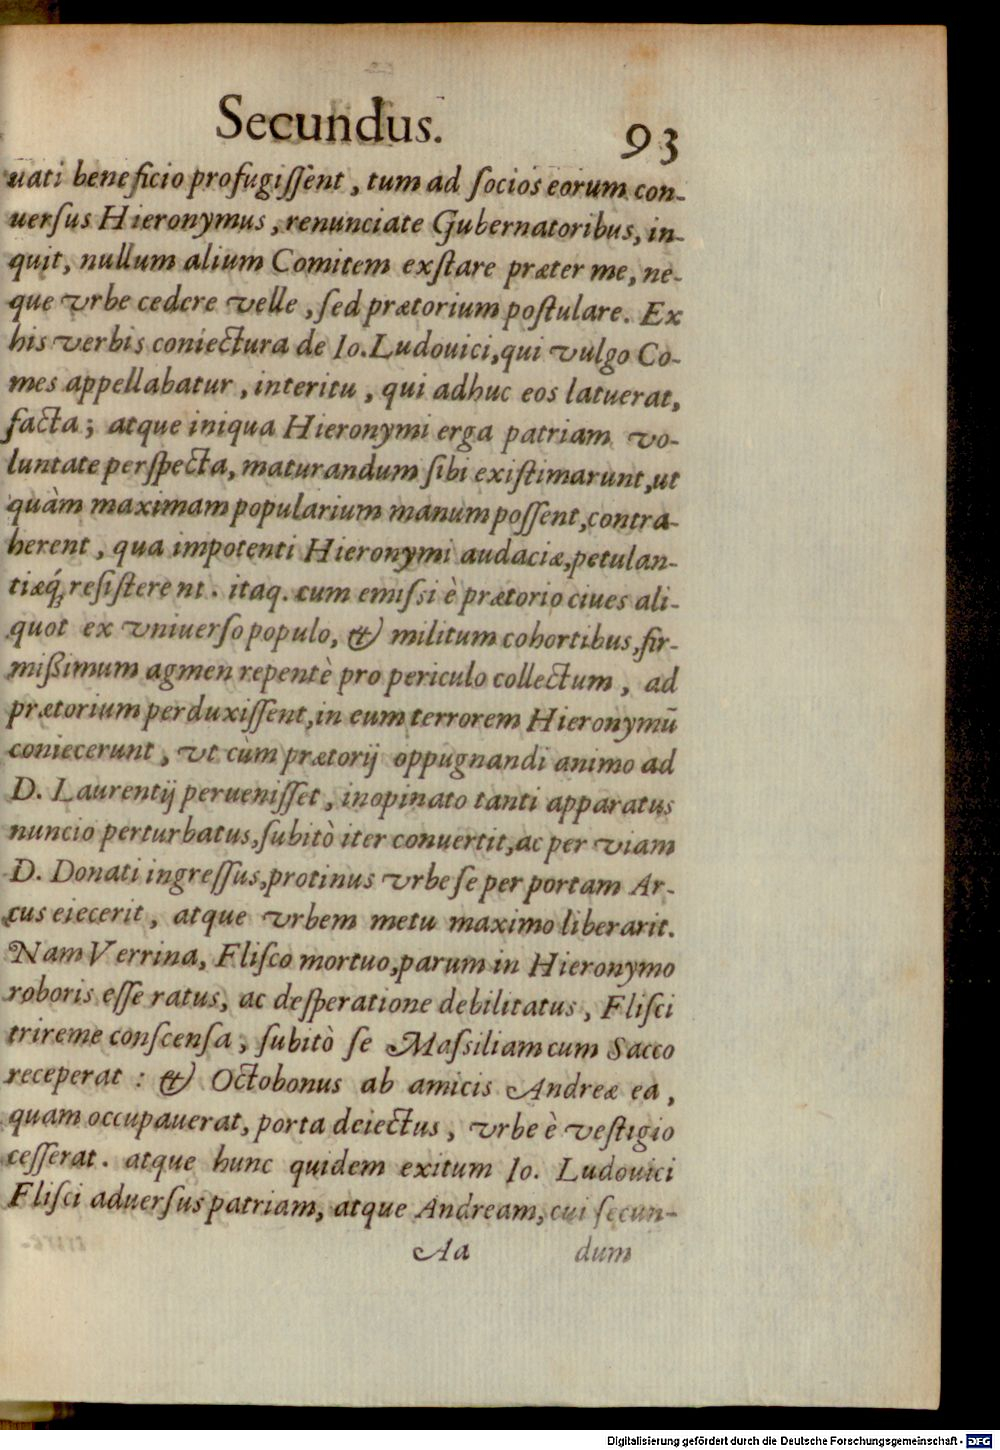 Secundus. 93
uati beneficio profugiſſent, tum ad ſocios eorum con-
uerſus Hieronymus, renunciate Gubernatoribus, in-
quit, nullum alium Comitem exſtare præter me, ne-
que vrbe cedere velle, ſed prætorium poſtulare. Ex
his verbis coniectura de Io. Ludouici, qui vulgo Co-
mes appellabatur, interitu, qui adhuc eos latuerat,
facta; atque iniqua Hieronymi erga patriam vo-
luntate perſpecta, maturandum ſibi exiſtimarunt, ut
quàm maximam popularium manum poſſent, contra-
herent, qua impotenti Hieronymi audaciæ, petulan-
tiæq́; reſiſterent. itaq. cum emiſsi è prætorio ciues ali-
quot ex vniuerſo populo, & militum cohortibus, fir-
mißimum agmen repentè pro periculo collectum, ad
prætorium perduxiſſent, in eum terrorem Hieronymū
coniecerunt, vt cùm prætorij oppugnandi animo ad
D. Laurentij perueniſſet, inopinato tanti apparatus
nuncio perturbatus, ſubitò iter conuertit, ac per viam
D. Donati ingreſſus, protinus vrbe ſe per portam Ar-
cus eiecerit, atque vrbem metu maximo liberarit.
Nam Verrina, Fliſco mortuo, parum in Hieronymo
roboris eſſe ratus, ac deſperatione debilitatus, Fliſci
trireme conſcenſa, ſubitò ſe Maſsiliam cum Sacco
receperat: & Octobonus ab amicis Andreæ ea,
quam occupauerat, porta deiectus, vrbe è veſtigio
ceſſerat. atque hunc quidem exitum Io. Ludouici
Fliſci aduerſus patriam, atque Andream, cui ſecun-
Aa dum
Digitalisierung gefördert durch die Deutsche Forschungsgemeinschaft - DFG